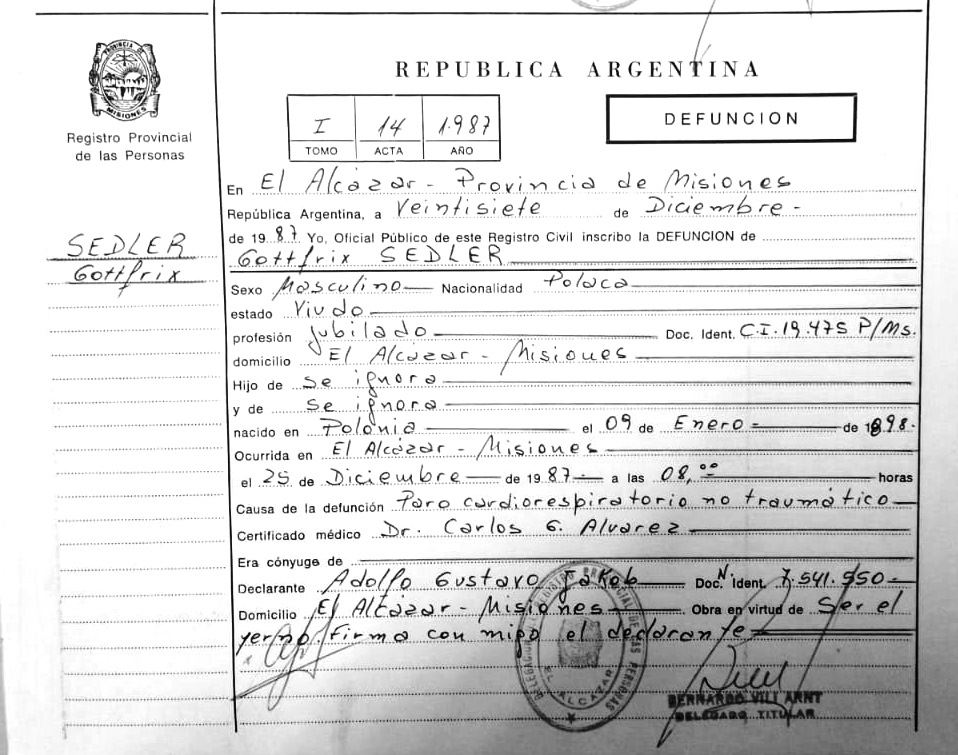 PROVINCIA DE
MISIONES
Registro Provincial
de las Personas
SEDLER
Gottfrix
REPUBLICA ARGENTINA
I 14 1.987
TOMO ACTA AÑO
DEFUNCION
En El Alcázar - Provincia de Misiones
República Argentina, a Veintisiete de Diciembre -
de 1987 Yo, Oficial Público de este Registro Civil inscribo la DEFUNCION de
Gottfrix SEDLER
Sexo Masculino Nacionalidad Polaca
estado Viudo
profesión Jubilado Doc. Ident. C.I. 19.475 P/Ms.
domicilio El Alcázar - Misiones
Hijo de se ignora
y de se ignora
nacido en Polonia el 09 de Enero - de 1898.
Ocurrida en El Alcázar - Misiones
el 25 de Diciembre de 1987 a las 08,00 horas
Causa de la defunción Paro cardiorespiratorio no traumático
Certificado médico Dr. Carlos G. Alvarez
Era cónyuge de
Declarante Adolfo Gustavo Jakob Doc. N Ident. 7.541.550-
Domicilio El Alcázar - Misiones Obra en virtud de Ser el
yerno, firma con migo el declarante
DELEGACION REGISTRO PROVINCIAL DE LAS PERSONAS
EL ALCAZAR
BERNARDO VILL ARNT
DELEGADO TITULAR